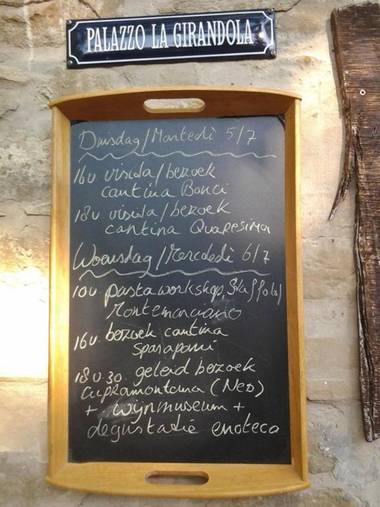 PALAZZO LA GIRANDOLA
Dinsdag/Martedì 5/7
16u visita/bezoek
cantina Bonci
18u visita/bezoek
cantina Quaresima
Woensdag/Mercoledì 6/7
10u pasta workshop,
Montemarciano
16u bezoek cantina
Sparapani
18u30 geleid bezoek
Cupramontana (Neo)
+ wijnmuseum +
degustatie enoteca